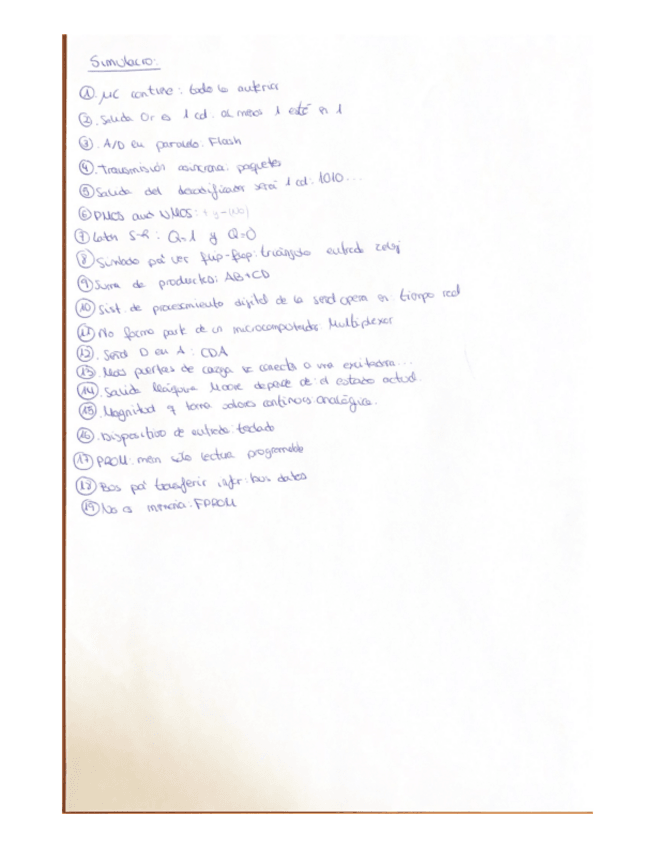 Simulacro:
① μC contiene: todo lo anterior
②. Salida Or es 1 cd: al menos 1 esté en 1
③. A/D en paralelo: Flash
④. Transmisión asíncrona: paquetes
⑤ Salida del decodificador será 1 cd: 1010...
⑥ PMOS and NMOS: + y - (No)
⑦ Latch S-R: Q=1 y Q=0
⑧ Símbolo pa' ver flip-flop: triángulo entrada reloj
⑨ Suma de productos: AB+CD
⑩ Sist. de procesamiento digital de la señal opera en: tiempo real
⑪ No forma part de un microcomputador Multiplexor
⑫. Señal D en 1: CDA
⑬. Más puertas de carga se conecta a una excitadora...
⑭. Salida Máquina Moore depende de: el estado actual.
⑮. Magnitud q toma valores continuos analógica.
⑯. Dispositivo de entrada: teclado
⑰ PROM: mem sólo lectura programable
⑱ Bus pa' transferir infor: bus datos
⑲ No es memoria: FPROM